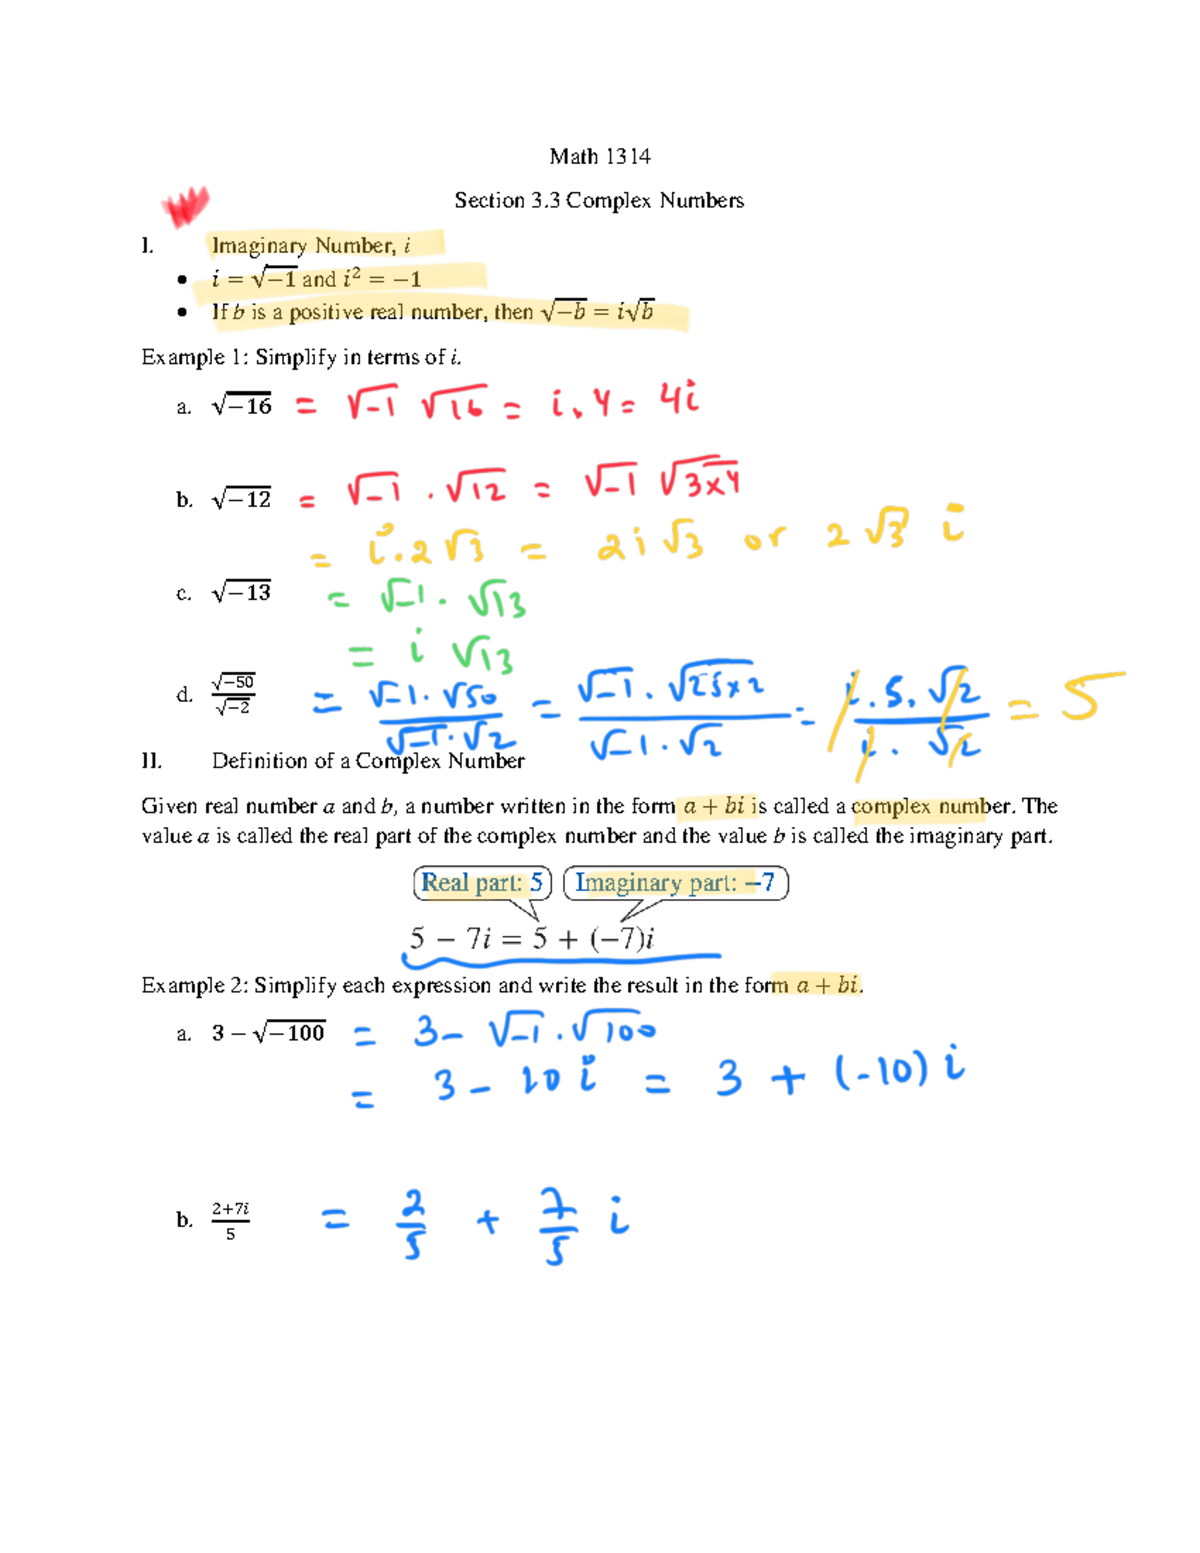 Math 1314
Section 3.3 Complex Numbers
I. Imaginary Number, i
• i = √−1 and i² = −1
• If b is a positive real number, then √−b = i√b
Example 1: Simplify in terms of i.
a. √−16 = √-1 √16 = i . 4 = 4i
b. √−12 = √-1 . √12 = √-1 √3x4
= i . 2√3 = 2i√3 or 2√3 i
c. √−13 = √-1 . √13
= i √13
d. √−50/√−2 = √-1 . √50/√-1 . √2 = √-1 . √25x2/√-1 . √2 = i . 5 . √2/i . √2 = 5
II. Definition of a Complex Number
Given real number a and b, a number written in the form a + bi is called a complex number. The
value a is called the real part of the complex number and the value b is called the imaginary part.
Real part: 5 Imaginary part: −7
5 − 7i = 5 + (−7)i
Example 2: Simplify each expression and write the result in the form a + bi.
a. 3 − √−100 = 3 - √-1 . √100
= 3 - 10 i = 3 + (-10) i
b. 2+7i/5 = 2/5 + 7/5 i